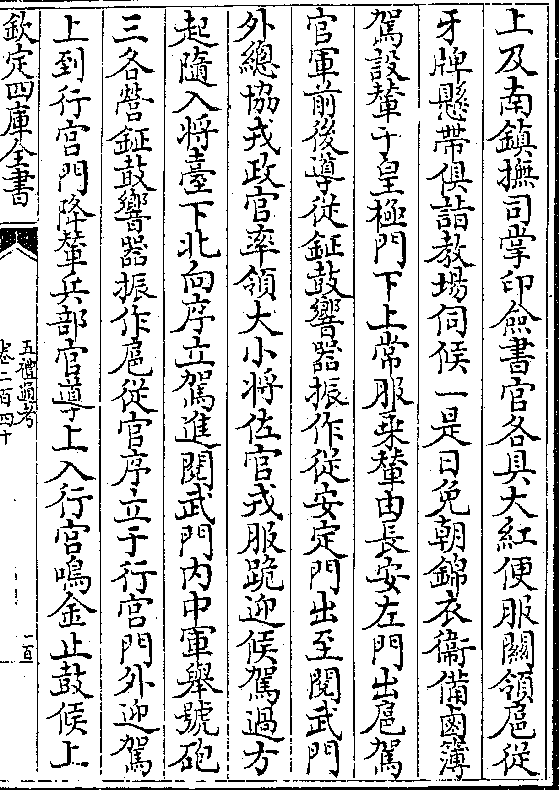 上及南鎮撫司掌印僉書官各具大紅便服關領扈從
牙牌懸帶俱詣教場伺候一是日免朝錦衣衞備鹵簿
駕設輦于皇極門下上常服乗輦由長安左門出扈駕
官軍前後導從鉦鼓響器振作從安定門出至閱武門
外總協戎政官率領大小將佐官戎服跪迎候駕過方
起隨入將臺下北向序立駕進閱武門内中軍舉號砲
三各營鉦鼓響器振作扈從官序立于行宫門外迎駕
上到行宫門降輦兵部官導上入行宫鳴金止鼓候上
欽定四庫全書
五禮通考
卷二百四十